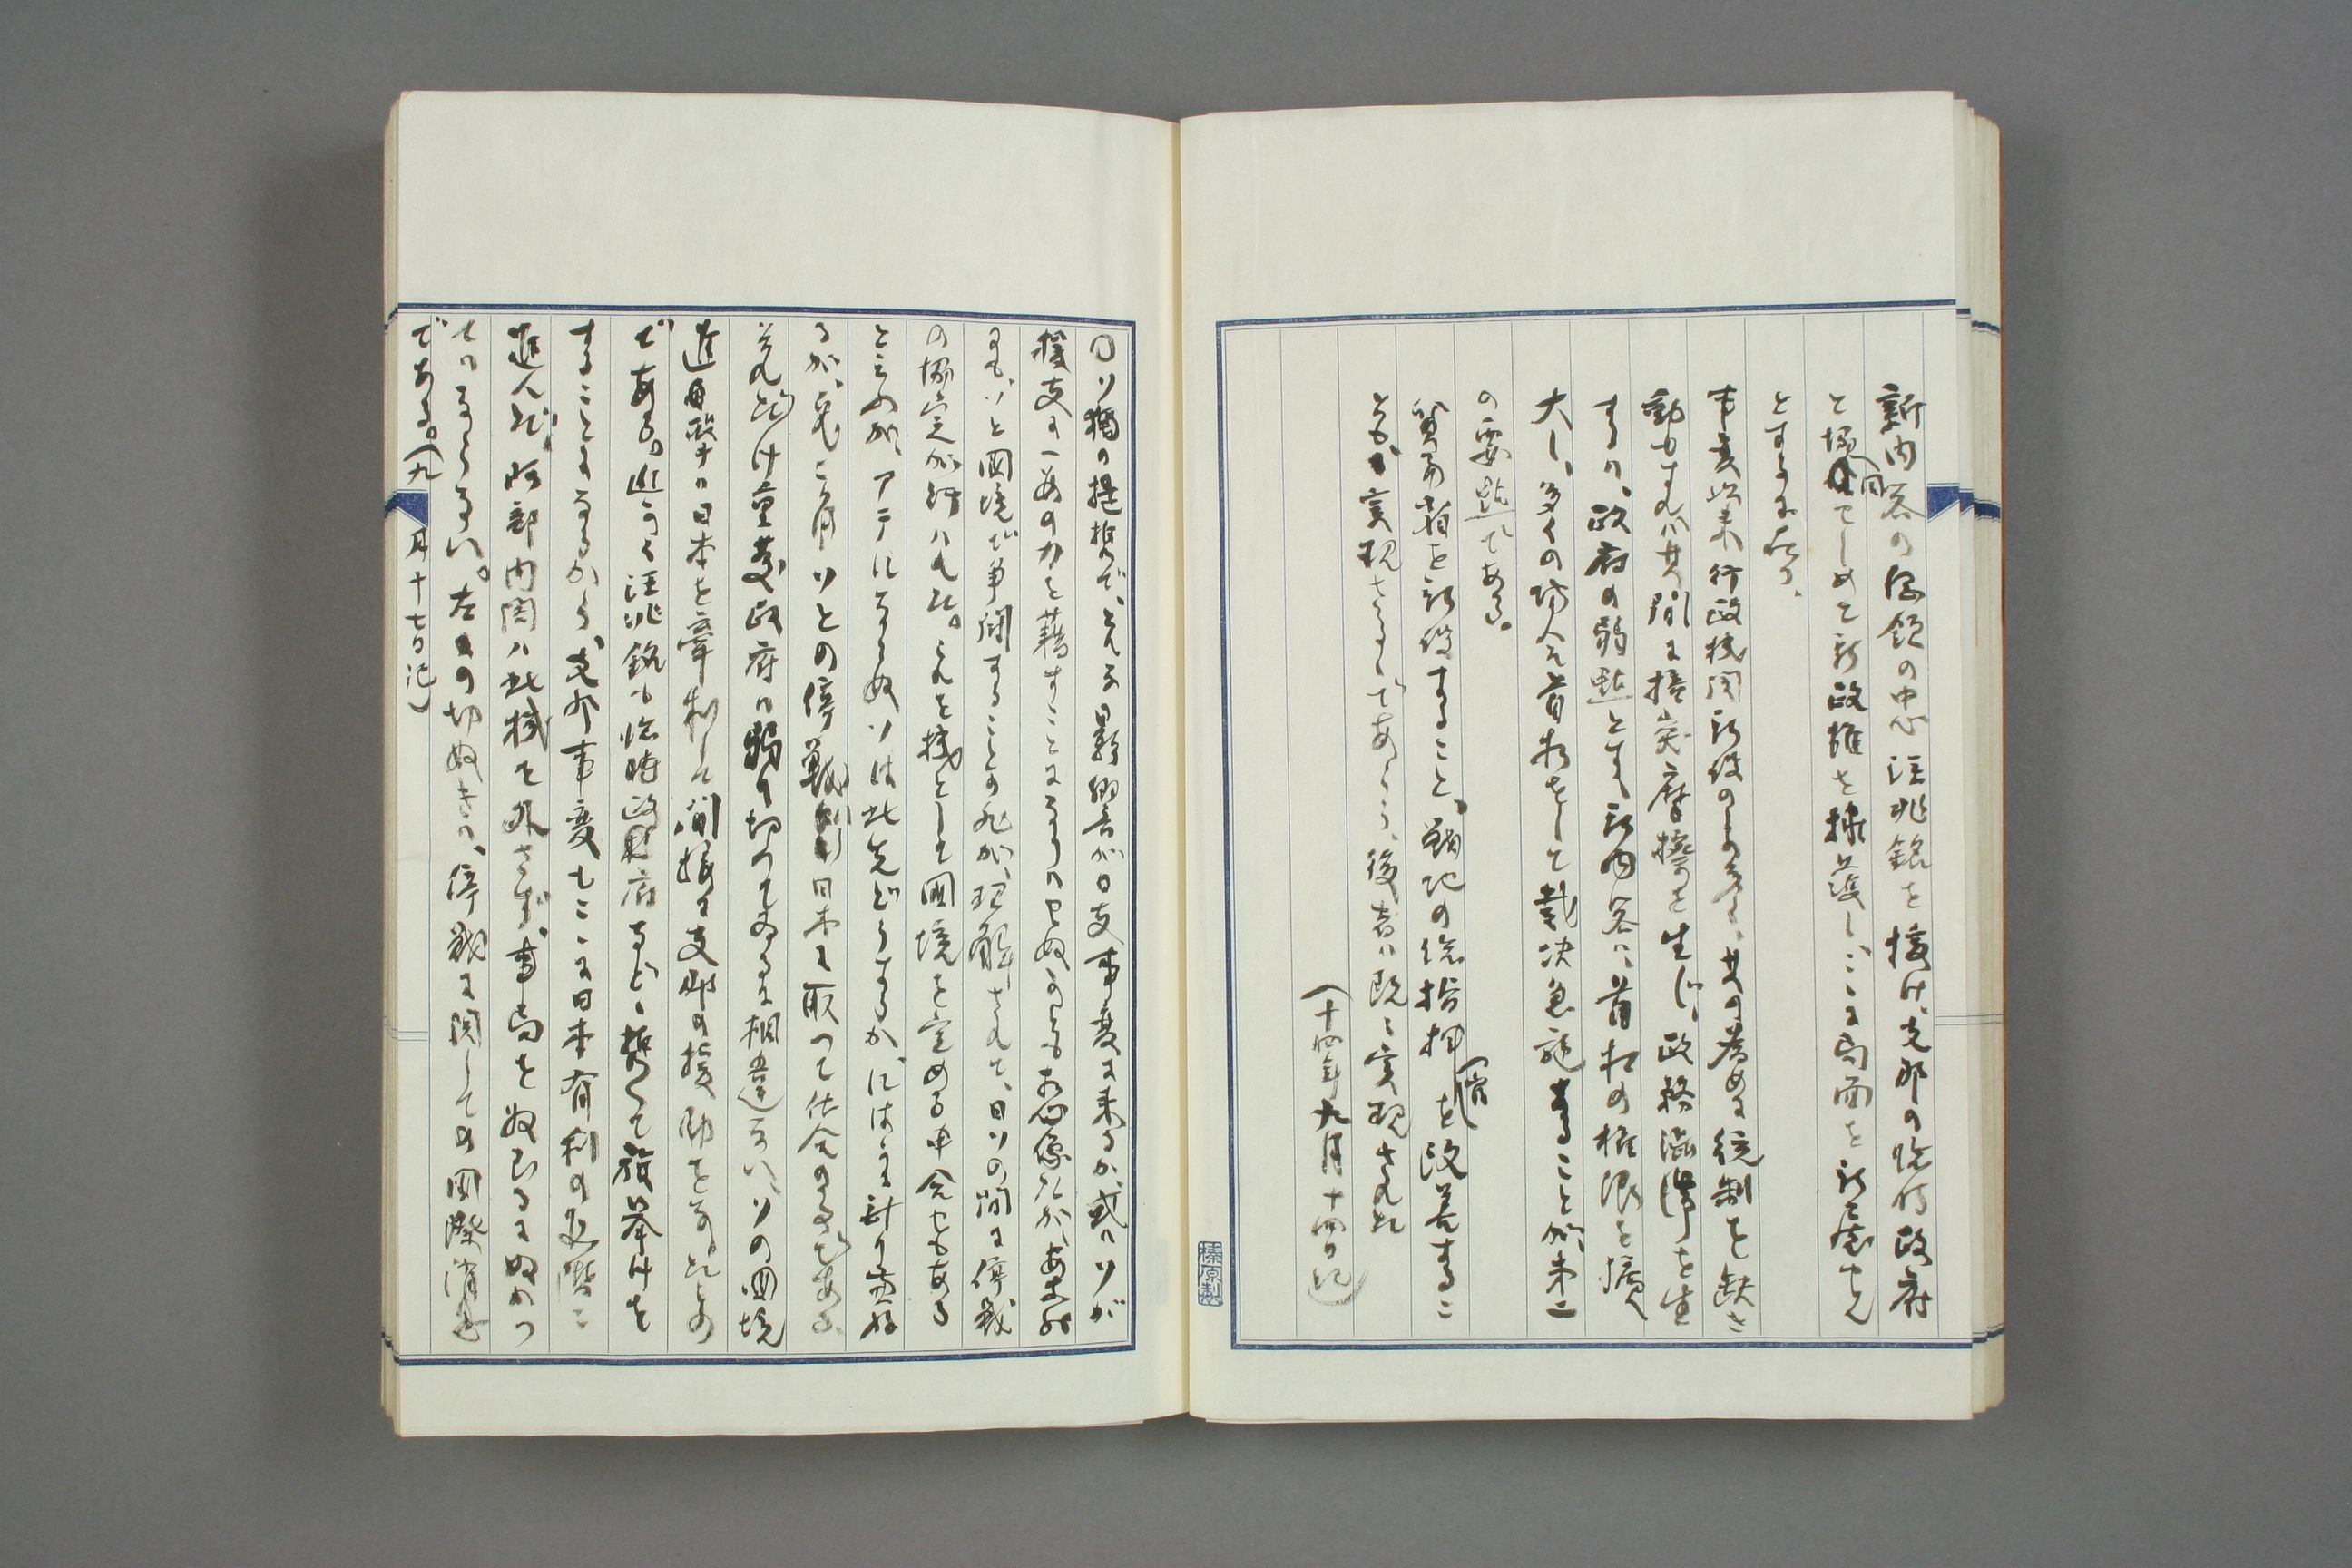 新内閣の綱領の中心汪兆銘を援け支那の臨時政府
と協同せしめて新政権を擁護し、こゝに局面を新に
とするに在り、
事変以来行政機関新設のもの多く、其の為めに統制を缺き
動もすれば其間に撞突摩擦を生じ、政務渋滞を生
するは、政府の弱點とする、新内閣は、首相の権限を擴
大し、多くの場合首相をして裁決急施すること、が第二
の要點である。
貿易省を新設すること、戦地の総指揮官を改善するこ
ともが實現さるゝであらう、後者は既に実現された
（十四年九月十四日記）
〇ソ獨の提携で、どんな影響が日支事変に来るか、或はソが
援支に一層の力を藉すことになりはせぬかとも想像たが、あまり
にも、ソと国境で争闘することの死が、理解されて、日ソの間に停戦
の協定が行はれた。これを機として国境を定める申合せもある
とこのが、アテにならぬソは此先どうするか、にはかに計り兼ね
るが、兎に角ソとの停戦は日本に取つて仕合のことである、
それだけ重慶政府は弱り切つてゐるに相違ない、ソの国境
進出政策は日本を牽制して間接に支那の援助をなしたもの
である。近づく汪兆銘も臨時政府など、挙つて旗挙げを
することになるから、支那事変もこゝに日本有利の段階に
進んだ。阿部内閣は此機を外さず事局を収めるにぬかつ
てはならない。左の切ぬきは、停戦に関しての国際消息
である。（九月十七日記）
榛原製